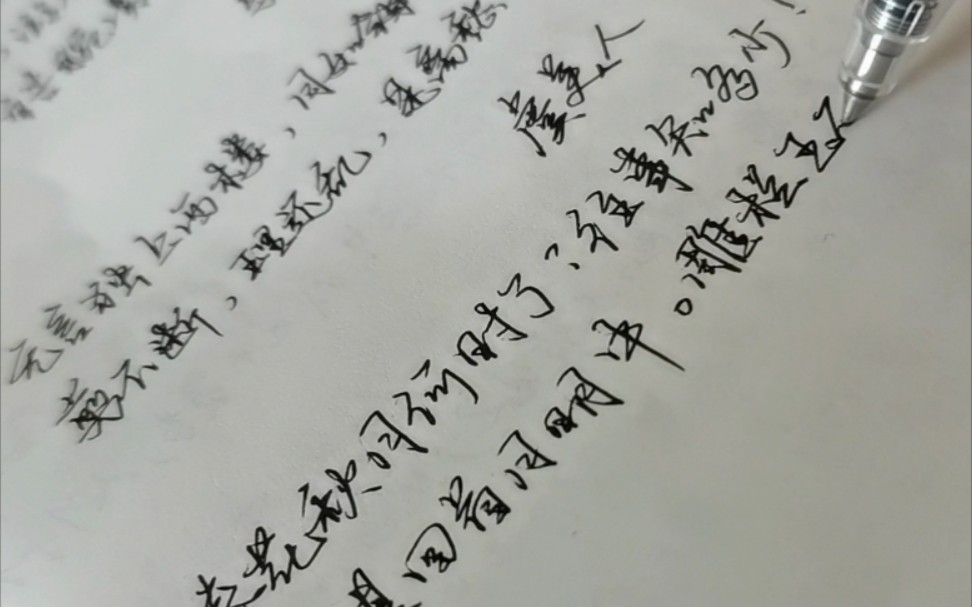 无言独上西楼，月如
剪不断，理还乱，是离愁
虞美人
春花秋月何时了？往事知多少
回首月明中。雕栏玉